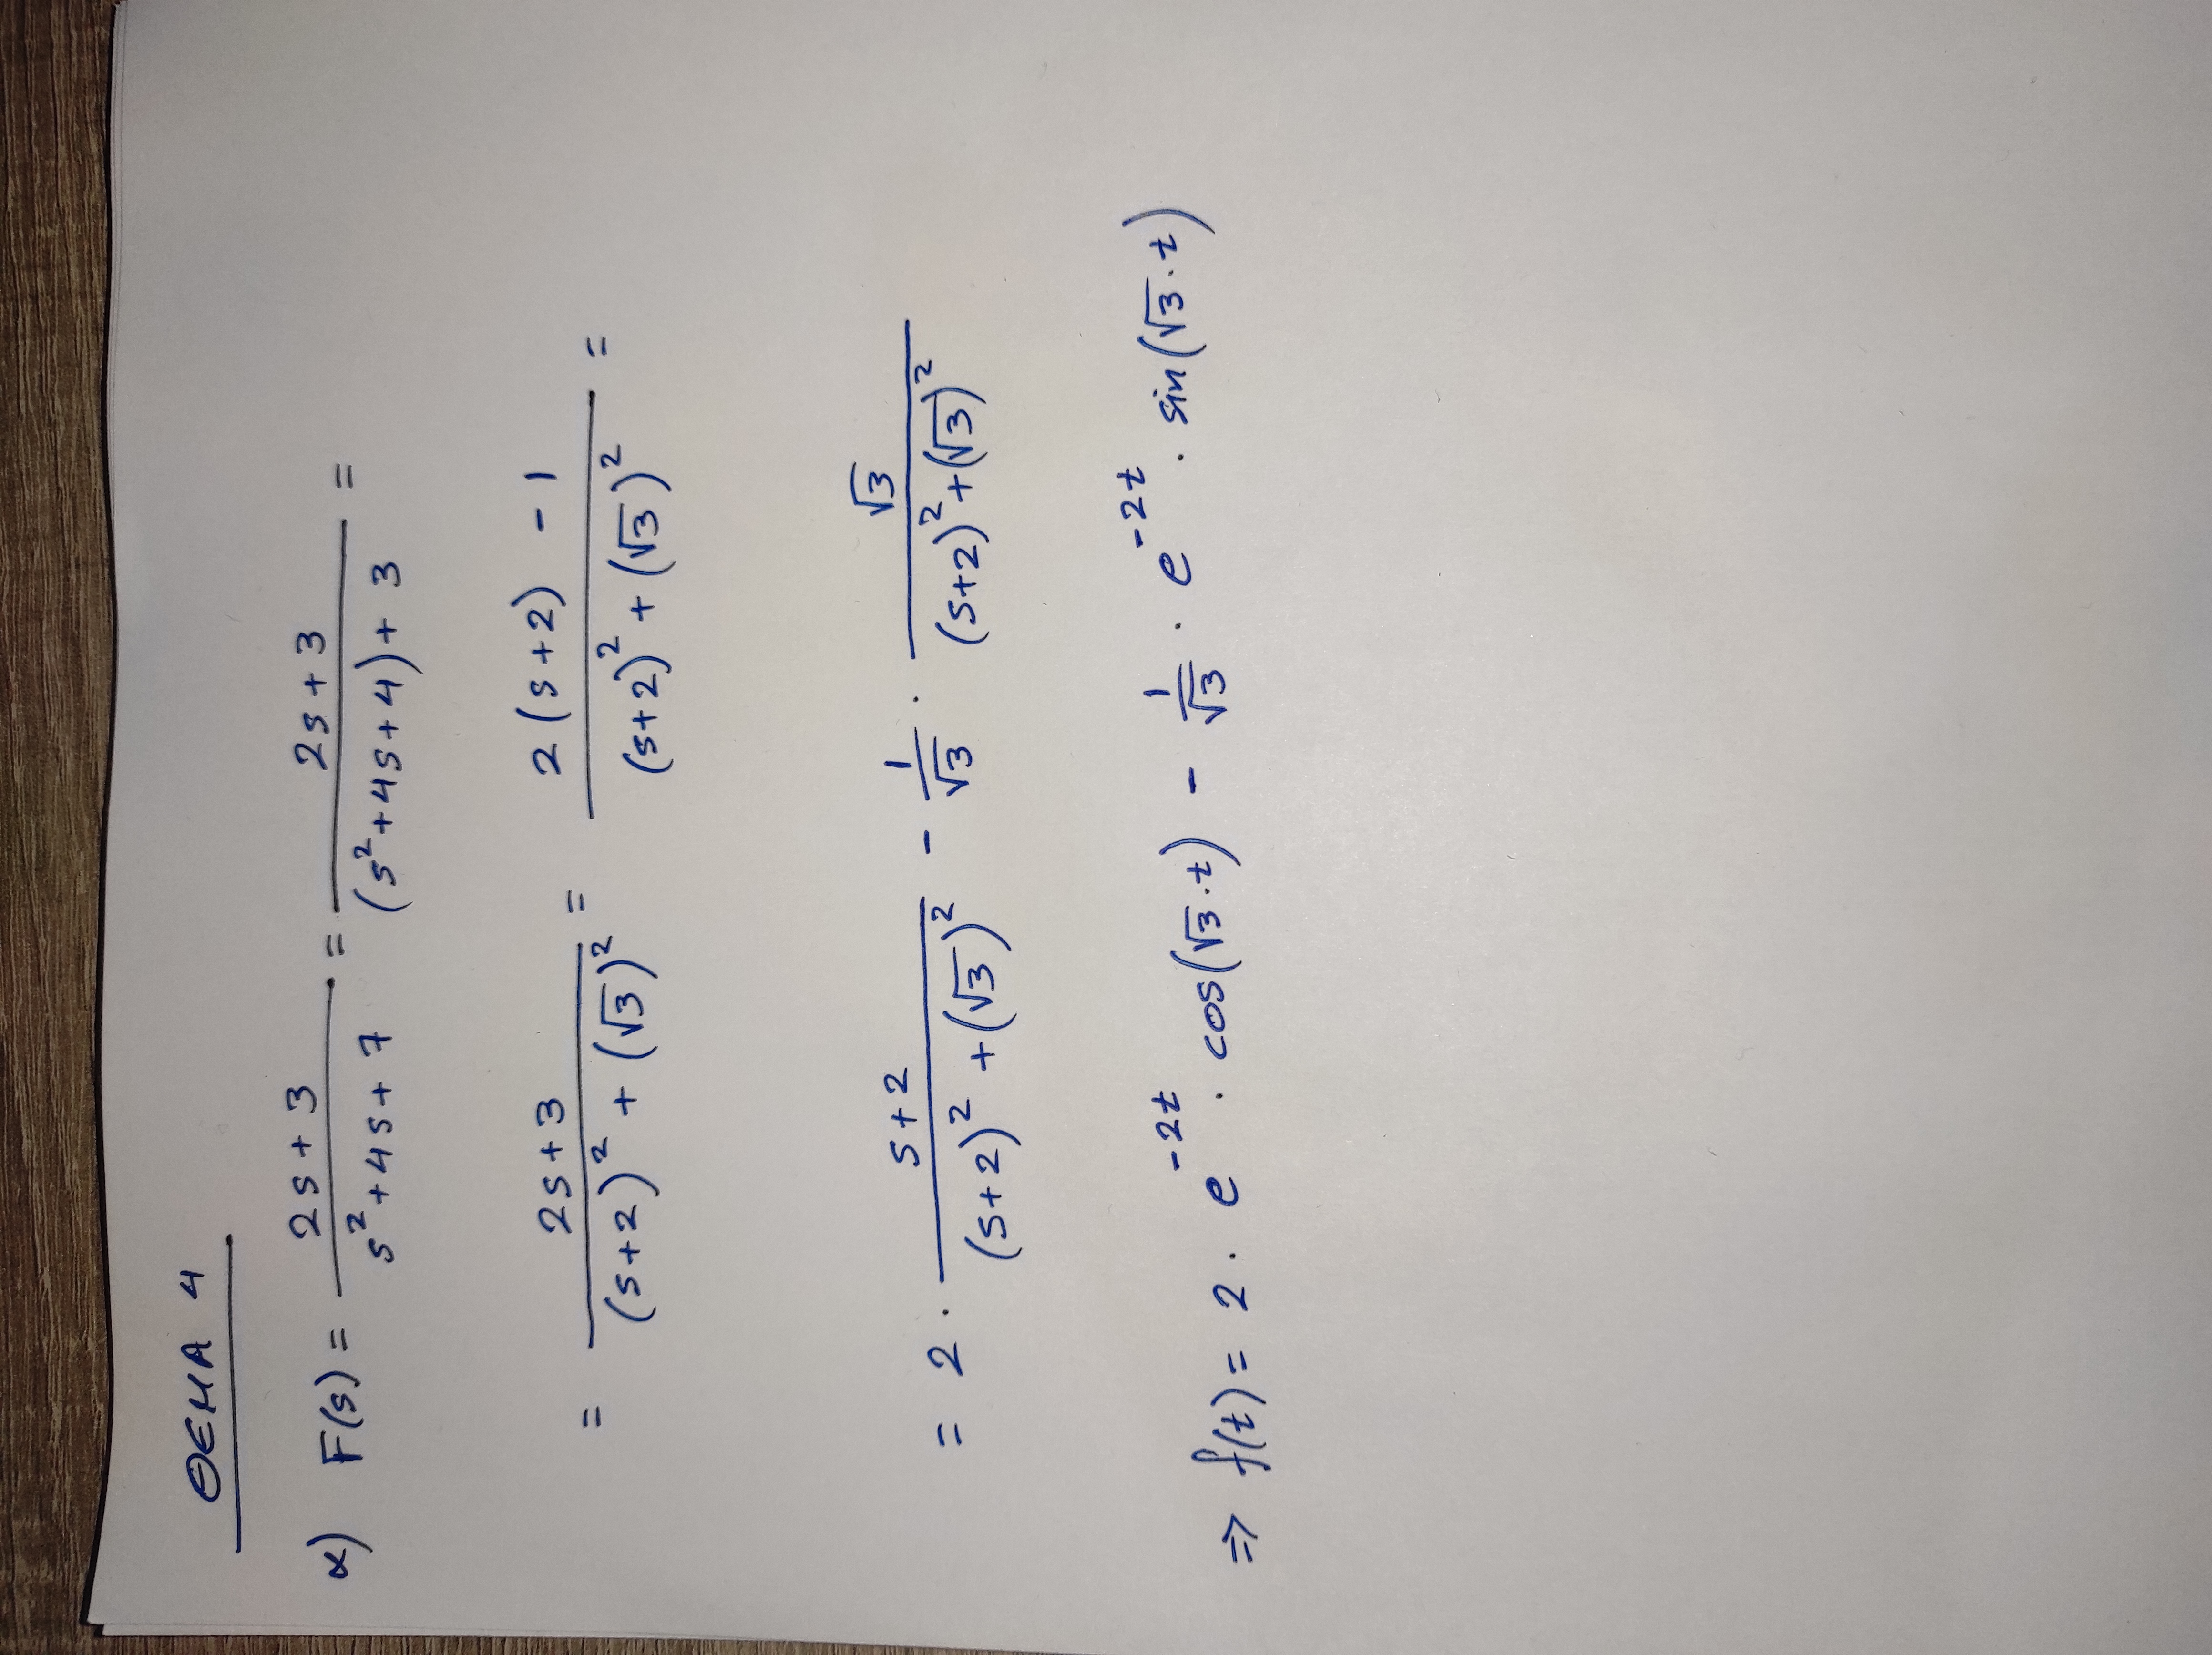 ΘΕΜΑ 4
α) F(s) = \frac{2s+3}{s^2+4s+7} = \frac{2s+3}{(s^2+4s+4)+3} =
= \frac{2s+3}{(s+2)^2+(\sqrt{3})^2} = \frac{2(s+2)-1}{(s+2)^2+(\sqrt{3})^2} =
= 2 · \frac{s+2}{(s+2)^2+(\sqrt{3})^2} - \frac{1}{\sqrt{3}} · \frac{\sqrt{3}}{(s+2)^2+(\sqrt{3})^2}
=> f(t) = 2 · e^{-2t} · cos(\sqrt{3}·t) - \frac{1}{\sqrt{3}} · e^{-2t} · sin(\sqrt{3}·t)